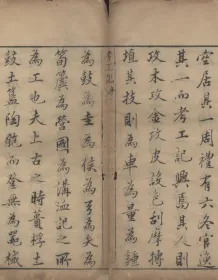 室居其一周禮有六冬官逸
其一而考工記興焉其人則
攻木攻金攻皮設色刮摩摶
埴其技則為車為量為鐘
為鼓為圭為侯為弓為矢為
筍簴為營國為溝洫記之所
為工也夫上古之時蕢桴土
鼓土簋陶匏而無為械